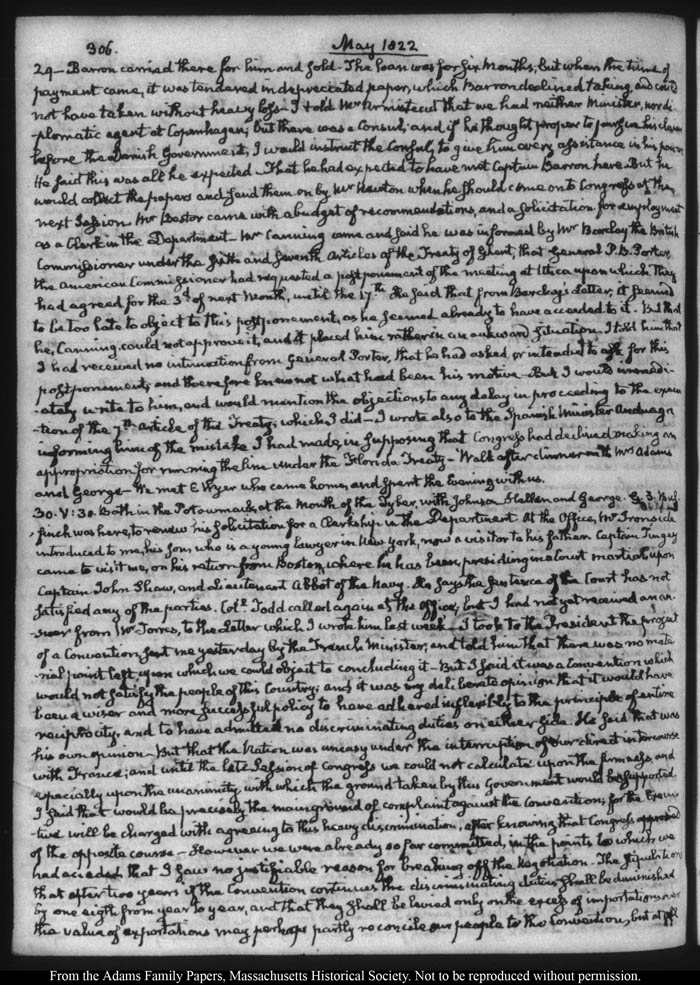 306.
May 1822
29 – Barron carried there for him and sold – The loan was for six Months; but when the time of
payment came, it was tendered in depreciated paper, which Barron declined taking, and could
not have taken without heavy loss – I told Mr Armistead that we had neither Minister, nor di-
-plomatic agent at Copenhagen; but there was a Consul; and if he thought proper to pursue his claim
before the Danish Government, I would instruct the Consul, to give him every assistance in his power
He said this was all he expected – That he had expected to have met Captain Barron here But he
would collect the papers and send them on by Mr Newton when he should come on to Congress at the
next Session. Mr Bestor came with a budget of recommendations, and a solicitation for employment
as a Clerk in the Department – Mr Canning came and said he was informed by Mr Barclay the British
Commissioner under the sixth and seventh Articles of the Treaty of Ghent, that General P. B. Porter,
the American Commissioner had requested a postponement of the meeting at Utica upon which they
had agreed for the 3d of next Month, until the 17th He said that from Barclay's Letter, it seemed
to be too late to object to this postponement, as he seemed already to have acceded to it. But that
he, Canning, could not approve it, and it placed him rather in an awkward situation. I told him that
I had received no intimation from General Porter, that he had asked, or intended to ask for this
postponement, and therefore knew not what had been his motive – But I would immedi-
-ately write to him, and would mention the objections to any delay in proceeding to the execu-
-tion of the 7th Article of the Treaty; which I did – I wrote also to the Spanish Minister Anduaga
informing him of the mistake I had made, in supposing that Congress had declined making an
appropriation for running the line under the Florida Treaty – Walk after dinner with Mrs Adams
and George – We met E Wyer who came home, and spent the Evening with us.
30. V: 30. Bath in the Potowmack, at the Mouth of the Tyber, with Johnson Hellen and George.
Finch was here, to renew his solicitation for a Clerkship in the Department. At the Office, Mr Ironside
introduced to me, his Son, who is a young Lawyer in New York, now a visitor to his father. Captain Tingey
came to visit me, on his return from Boston, where he has been, presiding in a Court martial upon
Captain John Shaw, and Lieutenant Abbot of the Navy. He says the sentence of the Court has not
satisfied any of the parties. Coll. Todd called again at the Office; but I had not yet received an an-
-swer from Mr Torres, to the Letter which I wrote him last week – I took to the President the projet
of a Convention sent me yesterday by the French Minister, and told him that there was no mate
-rial point left, upon which we could object to concluding it – But I said it was a Convention which
would not satisfy the people of this Country; and it was my deliberate opinion that it would have
been a wiser and more successful policy to have adhered inflexibly to the principle of entire
reciprocity, and to have admitted no discriminating duties on either side. He said that was
his own opinion – But that the Nation was uneasy under the interruption of our direct intercourse
with France; and until the late Session of Congress we could not calculate upon the firmness, and
especially upon the unanimity, with which the ground taken by this Government would be supported.
I said that would be precisely the main ground of complaint against the Convention; for the Execu-
tive will be charged with agreeing to this heavy discrimination, after knowing that Congress approved
of the opposite course – However we were already so far committed, in the points to which we
had acceded that I saw no justifiable reason for breaking off the Negotiation. The stipulation
that after two years if the Convention continues the discriminating duties shall be diminished
by one eigth from year to year, and that they shall be levied only on the excess of importations over
the value of exportations may perhaps partly reconcile our people to the Convention, but at
From the Adams Family Papers, Massachusetts Historical Society. Not to be reproduced without permission.